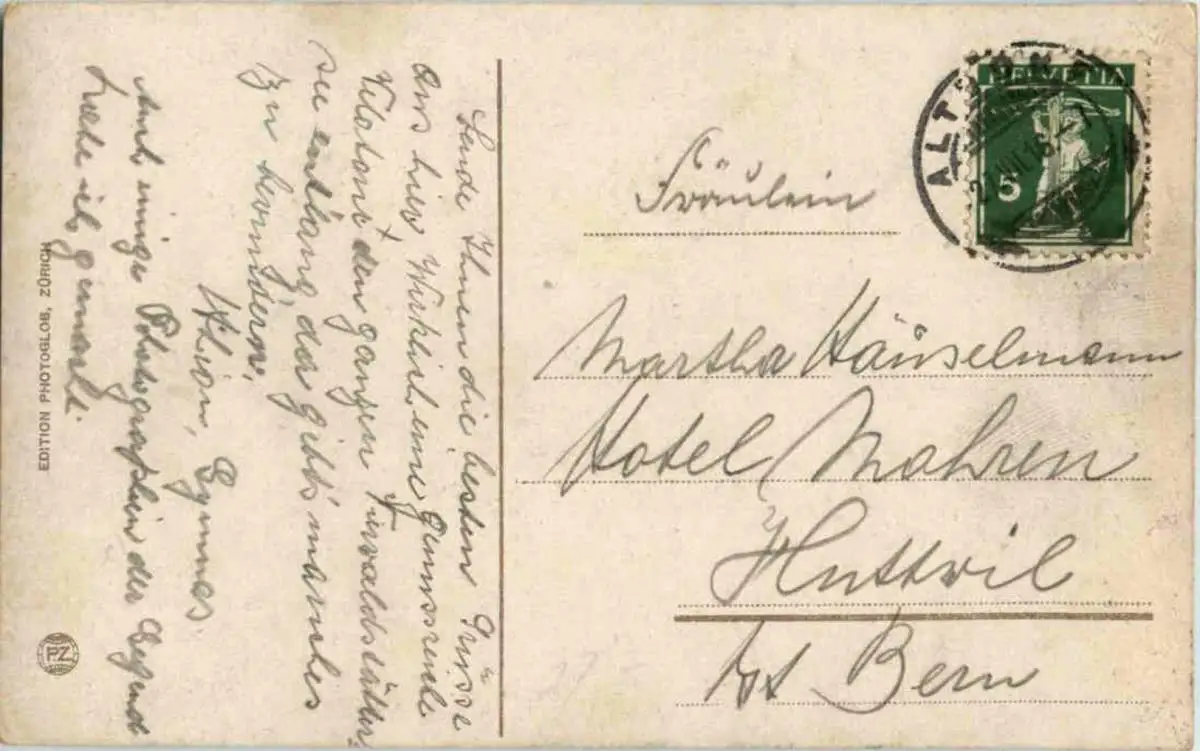 Sende Ihnen die besten Grüsse
aus hier, Wirklich eine genussreiche
Velotour den ganzen Vierwaldstätter
see entlang da gibt's manches
zu bewundern.
Auch einige Photographien der Gegend
habe ich gemacht.
EDITION PHOTOGLOB, ZÜRICH
PZ
HELVETIA
5
ALTDORF
Fräulein
Martha Häuselmann
Hotel Mohren
Huttwil
Kt Bern